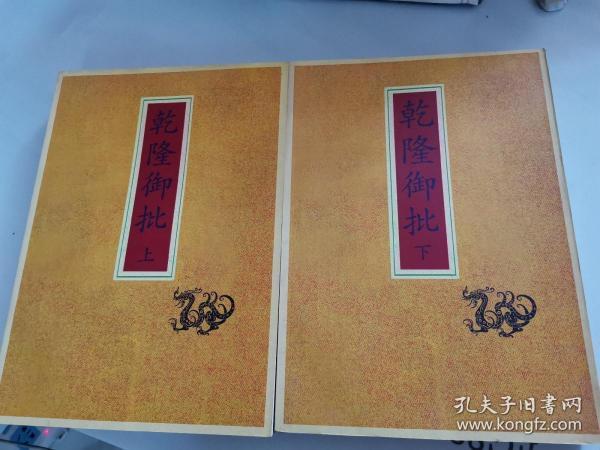 乾隆御批
上
乾隆御批
下
孔夫子旧书网
www.kongfz.com